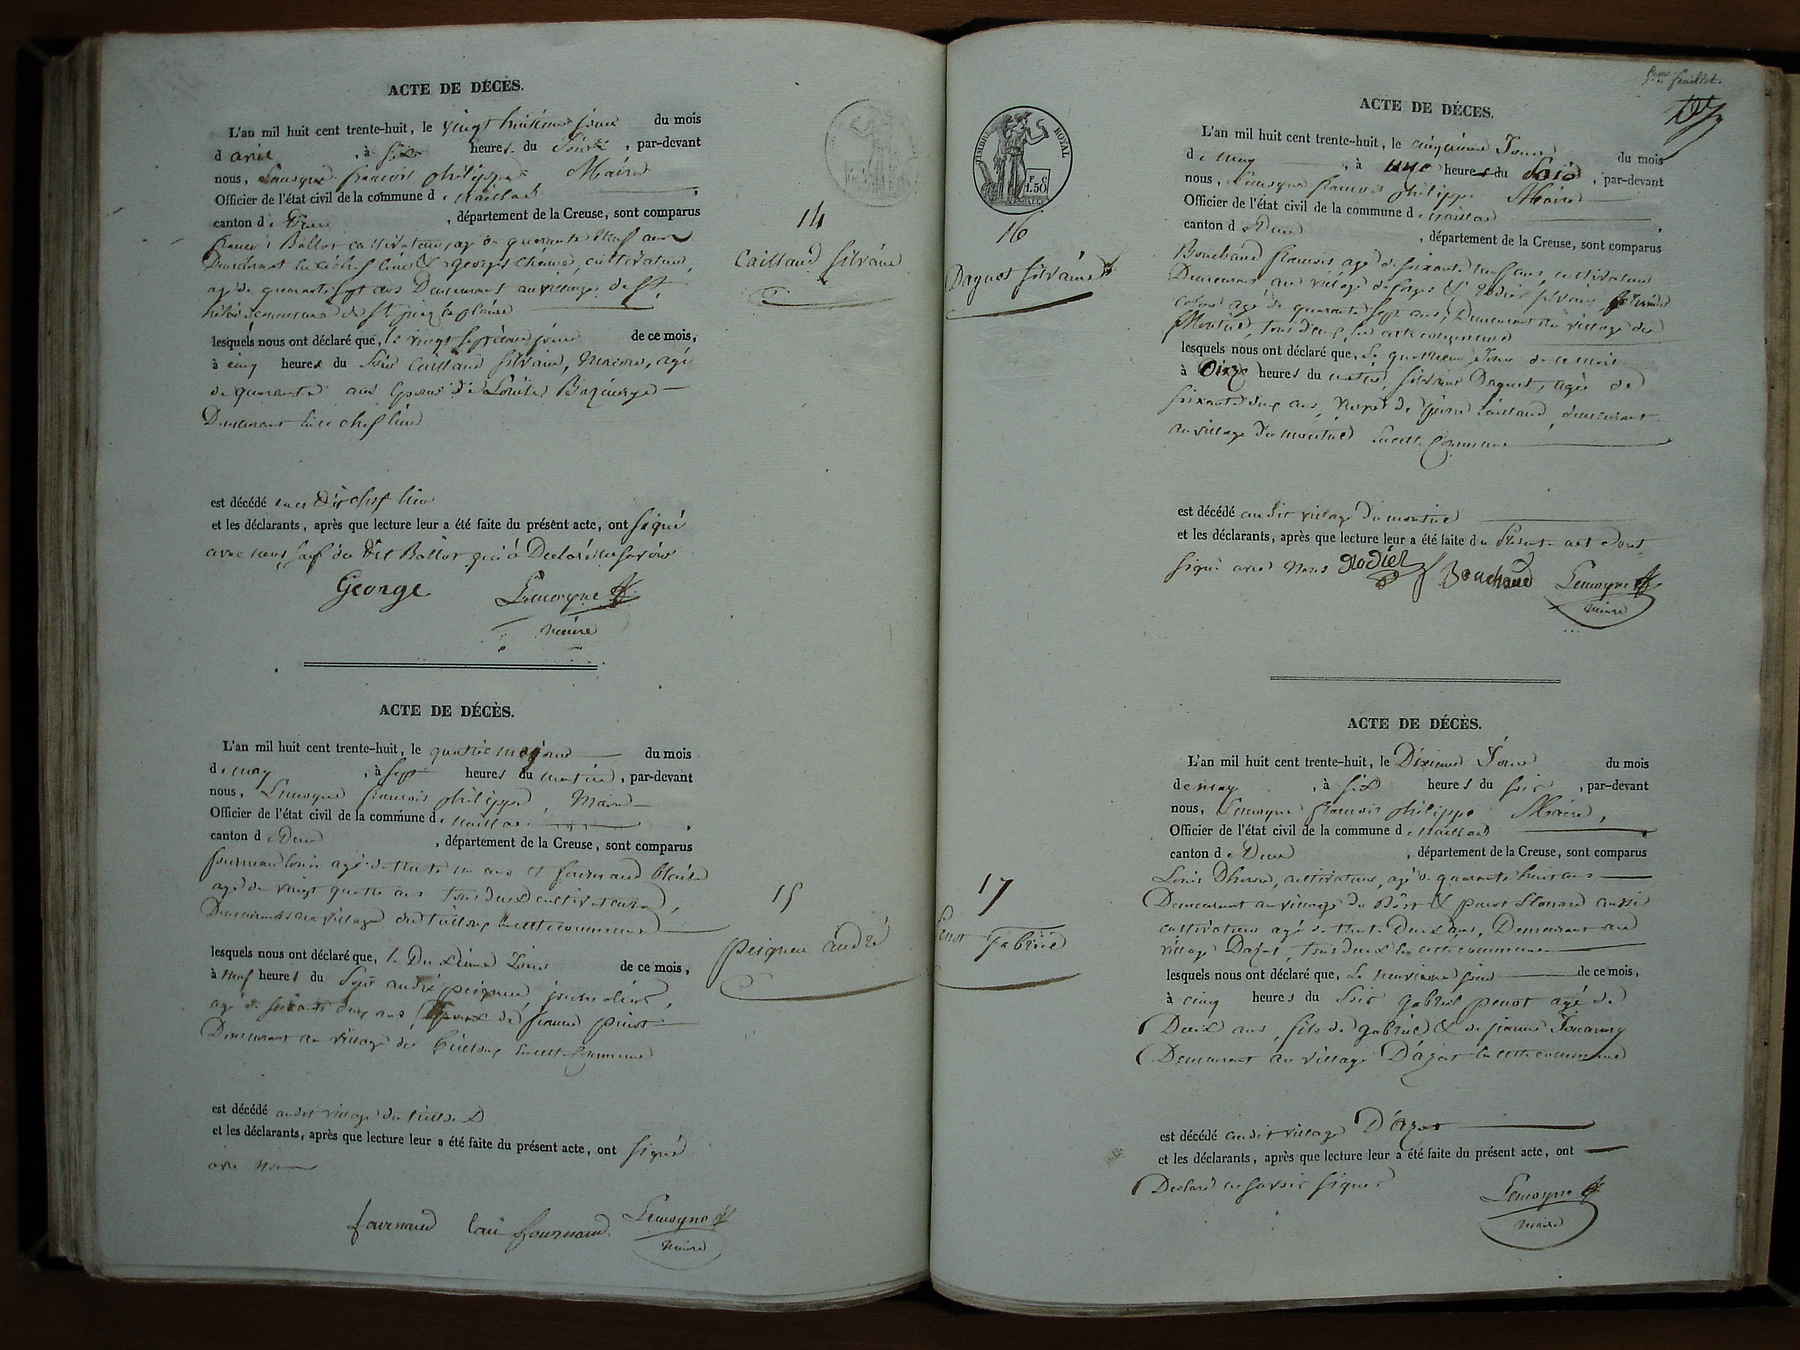 ACTE DE DÉCÈS.
L'an mil huit cent trente-huit, le vingt huitième jour du mois
d avril, à six heures du Soir, par-devant
nous, Lemoyne françois philippe Maire
Officier de l'état civil de la commune de Naillat,
canton de Dun, département de la Creuse, sont comparus
francois Ballot cultivateur, agé de quarante neuf ans
Demeurant en ce chef lieu & Georges cultivateur,
agé de quarante sept ans Demeurant au village de St
commune de St
lesquels nous ont déclaré que, le vingt septième jour de ce mois,
à cinq heures du Soir Caillaud Silvain, Macon, agé
de quarante ans Epoux de Louise
Demeurant en ce chef lieu
est décédé en ce Dit chef lieu
et les déclarants, après que lecture leur a été faite du présent acte, ont signé
avec nous, sauf le dit Ballot qui a Declaré ne savoir
George Lemoyne
maire
14
Caillaud Silvain
ACTE DE DÉCÈS.
L'an mil huit cent trente-huit, le quatrieme jour du mois
de may, à sept heures du matin, par-devant
nous, Lemoyne francois philippe, Maire
Officier de l'état civil de la commune de Naillat,
canton de Dun, département de la Creuse, sont comparus
fournaud louis agé de trente un ans et fournaud
agé de vingt quatre ans tous deux cultivateurs,
Demeurants au village du en cette commune
lesquels nous ont déclaré que, le Deuxième Jour de ce mois,
à neuf heures du Soir andré peignen, journalier,
agé de soixante ans, Epoux de jeanne pinot
Demeurant au village du en cette Commune
est décédé audit village du
et les déclarants, après que lecture leur a été faite du présent acte, ont signé
avec nous
fournaud loui fournaud Lemoyne
maire
15
peignen andré
5eme feuillet.
TIMBRE ROYAL
F. C.
1.50
16
Daguet Silvaine
ACTE DE DÉCES.
L'an mil huit cent trente-huit, le cinquieme Jour du mois
de may, à une heure du Soir, par-devant
nous, Lemoyne francois philippe Maire
Officier de l'état civil de la commune de Naillat
canton de Dun, département de la Creuse, sont comparus
Bouchaud francois agé de soixante neuf ans, cultivateur
Demeurant au village de forges & Silvain
agé de quarante sept ans, Demeurant au village du
Monteil, tous deux en cette commune
lesquels nous ont déclaré que, le quatrieme Jour de ce mois
à Onze heures du matin, Silvaine Daguet, agée de
soixante ans, Veuve de pierre demeurant
au village du monteil en cette Commune
est décédé audit village du monteil
et les déclarants, après que lecture leur a été faite du présent acte ont
signé avec Nous Bouchaud Lemoyne
maire
17
Penot Gabriel
ACTE DE DÉCÈS.
L'an mil huit cent trente-huit, le Dixieme Jour du mois
de may, à six heures du soir, par-devant
nous, Lemoyne francois philippe Maire,
Officier de l'état civil de la commune de Naillat
canton de Dun, département de la Creuse, sont comparus
Louis cultivateur, agé de quarante huit ans
Demeurant au village du & penot Léonard aussi
cultivateur agé de trente Deux ans, Demeurant au
village Dazat, tous deux en cette commune
lesquels nous ont déclaré que, le neuvieme jour de ce mois,
à cinq heures du Soir gabriel penot agé de
Deux ans, fils de gabriel & de jeanne
Demeurant au village D'azat en cette commune
est décédé audit village D'azat
et les déclarants, après que lecture leur a été faite du présent acte, ont
Déclaré ne savoir signer
Lemoyne
maire